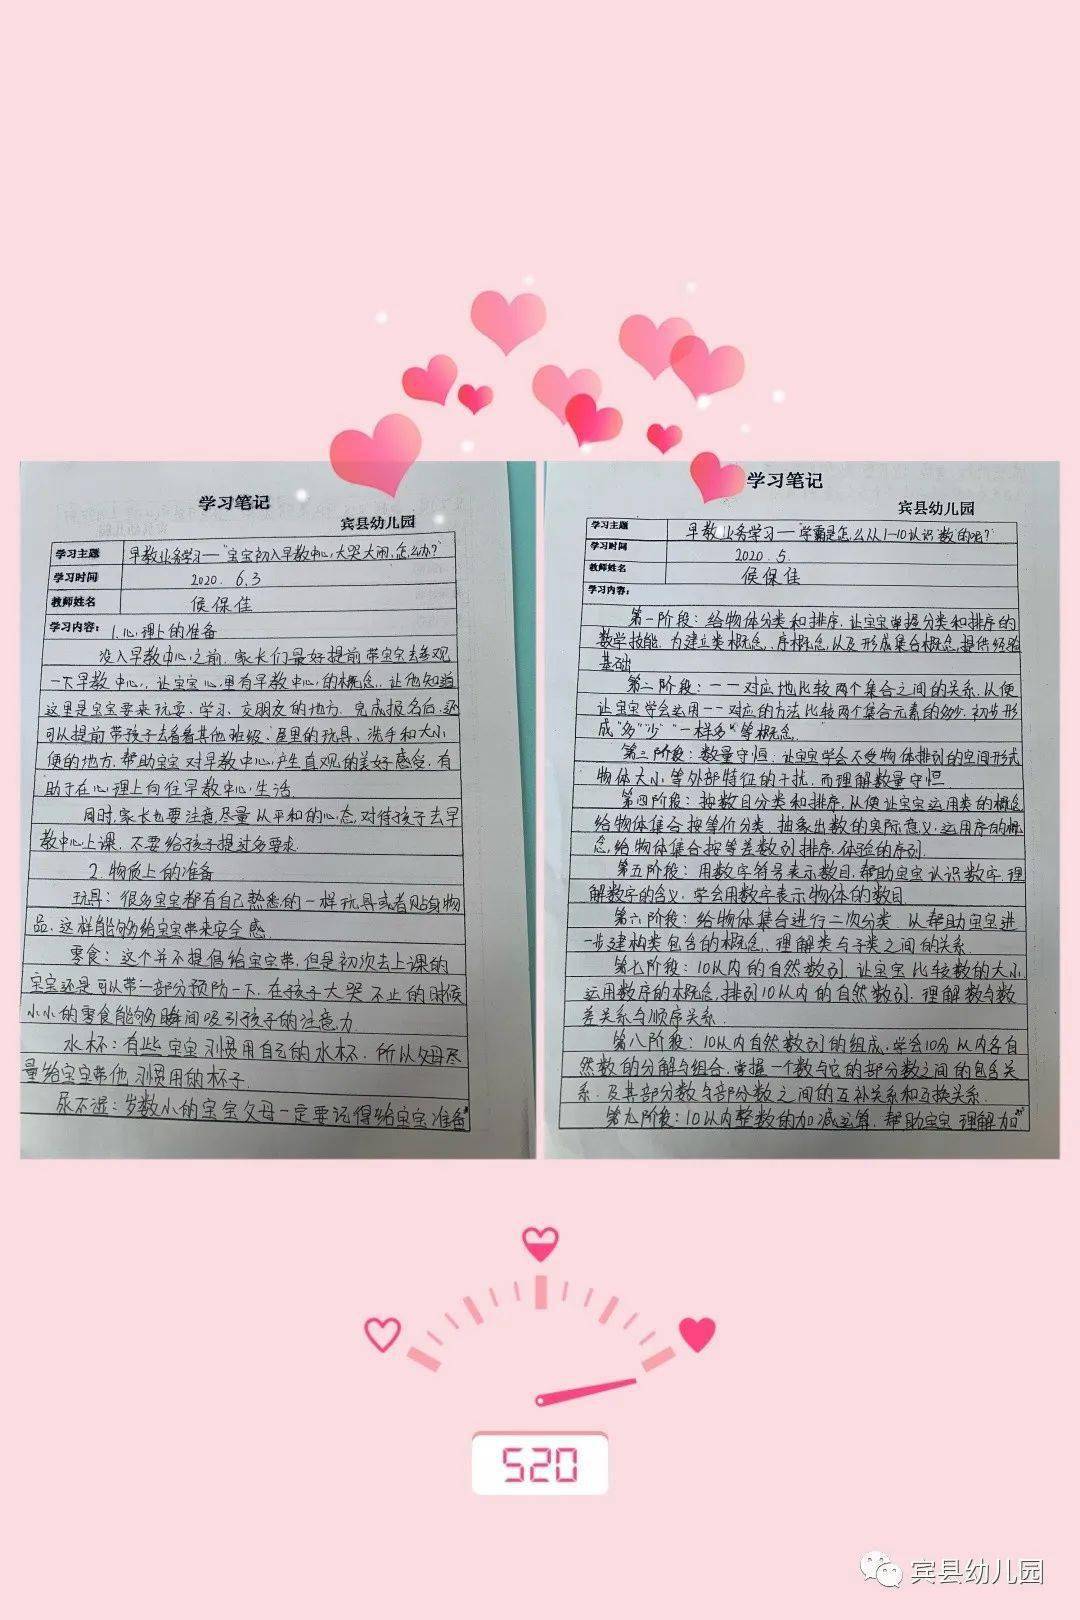 学习笔记
宾县幼儿园
学习主题 早教业务学习——“宝宝初入早教中心,大哭大闹,怎么办?”
学习时间 2020. 6.3
教师姓名 侯保佳
学习内容: 1.心理上的准备
没入早教中心之前,家长们最好提前带宝宝去参观
一下早教中心,让宝宝心里有早教中心的概念,让他知道
这里是宝宝要来玩耍、学习、交朋友的地方.完成报名后,还
可以提前带孩子去看看其他班级、屋里的玩具、洗手和大小
便的地方.帮助宝宝对早教中心产生直观的美好感受,有
助于在心理上向往早教中心生活.
同时,家长也要注意,尽量从平和的心态,对待孩子去早
教中心上课,不要给孩子提过多要求.
2.物质上的准备
玩具:很多宝宝都有自己熟悉的一样玩具或者贴身物
品,这样能够给宝宝带来安全感.
零食:这个并不提倡给宝宝带,但是初次去上课的
宝宝还是可以带一部分预防一下.在孩子大哭不止的时候
小小的零食能够瞬间吸引孩子的注意力.
水杯:有些宝宝习惯用自己的水杯,所以父母尽
量给宝宝带他习惯用的杯子.
尿不湿:岁数小的宝宝父母一定要记得给宝宝准备
学习笔记
宾县幼儿园
学习主题 早教业务学习——“学霸是怎么从1-10认识数的呢?”
学习时间 2020. 5.
教师姓名 侯保佳
学习内容:
第一阶段:给物体分类和排序.让宝宝掌握分类和排序的
数学技能,为建立类概念、序概念,以及形成集合概念,提供经验
基础
第二阶段:一一对应地比较两个集合之间的关系,从使
让宝宝学会运用一一对应的方法比较两个集合元素的多少,初步形
成“多”“少”“一样多”等概念.
第三阶段:数量守恒.让宝宝学会不受物体排列的空间形式
物体大小等外部特征的干扰,而理解数量守恒
第四阶段:按数目分类和排序,从使让宝宝运用类的概念
给物体集合按等价分类,抽象出数的实际意义,运用序的概
念,给物体集合按等差数列排序,体验的序列.
第五阶段:用数字符号表示数目.帮助宝宝认识数字,理
解数字的含义.学会用数字表示物体的数目
第六阶段:给物体集合进行二次分类.从帮助宝宝进
一步建构类包含的概念,理解类与子类之间的关系.
第七阶段:10以内的自然数列.让宝宝比较数的大小,
运用数序的概念,排列10以内的自然数列.理解数与数
差关系与顺序关系.
第八阶段:10以内自然数列的组成,学会10分以内各自
然数的分解与组合.掌握一个数与它的部分数之间的包含关
系.及其部分数与部分数之间的互补关系和互换关系.
第九阶段:10以内整数的加减运算.帮助宝宝理解加
520
宾县幼儿园